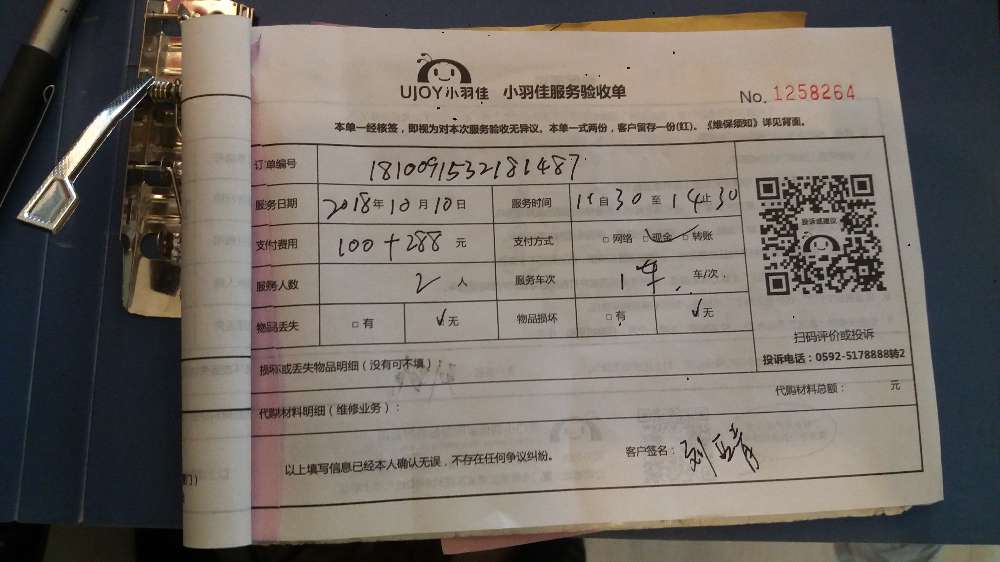 UJOY小羽佳 小羽佳服务验收单
No. 1258264
本单一经核签，即视为对本次服务验收无异议。本单一式两份，客户留存一份(红)。《维保须知》详见背面。
订单编号 1810091532181487
服务日期 2018年10月10日 服务时间 11自30至14止30
支付费用 100+288元 支付方式 □网络 □现金 □转账
服务人数 2人 服务车次 1车 车/次
物品丢失 □有 √无 物品损坏 □有 √无
投诉或建议
扫码评价或投诉
投诉电话：0592-5178888转2
损坏或丢失物品明细（没有可不填）
代购材料总额： 元
代购材料明细（维修业务）：
以上填写信息已经本人确认无误，不存在任何争议纠纷。
客户签名：刘